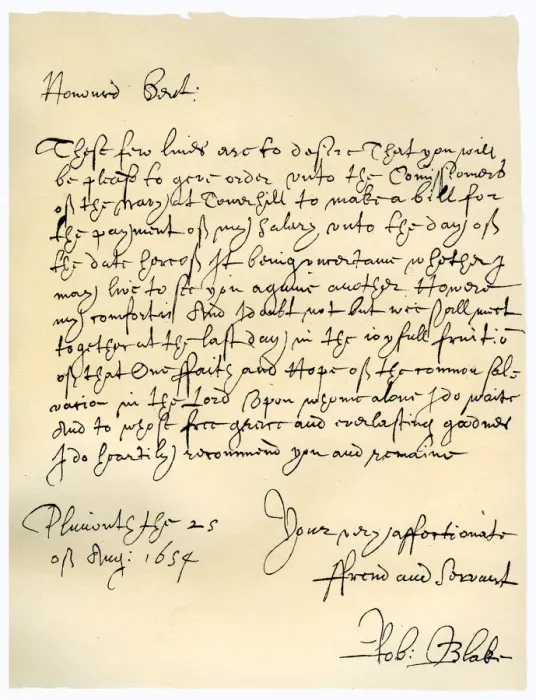 Honoured Bert:
These few lines are to desire That you will
be pleasd to geve order vnto the Comissioners
of the Navy at Towerhill to make a bill for
the payment of my Salary vnto the day of
the date hereof It being vncertane whether I
may live to see you againe another Howere
my comfort is And I doubt not but wee shall meet
together at the last day in the ioyfull fruitio
of that One ffaith and Hope of the common sal-
vation in the Lord Vpon whome alone I do waite
And to whose free grace and everlasting goodnes
I do heartily recommend you and remaine
Plimouth the 25
of Aug: 1654
Your very affectionate
ffrend and Servant
Rob: Blake